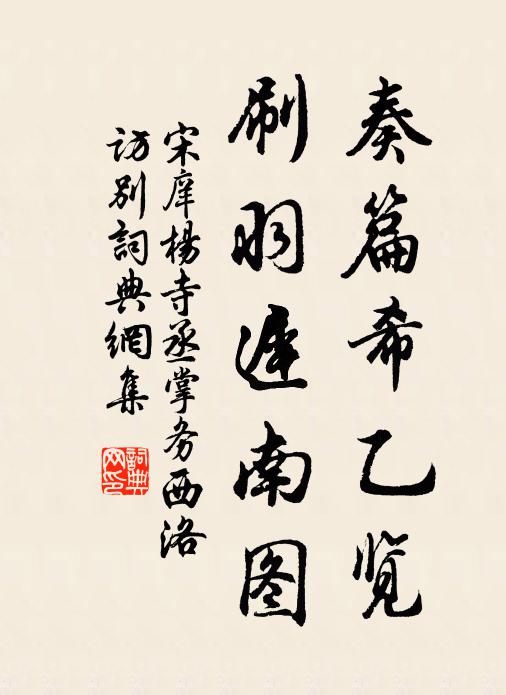 奏篇希乙览
刷羽迟南图
宋庠杨寺丞掌务西洛
访别詞典網集
詞典网印